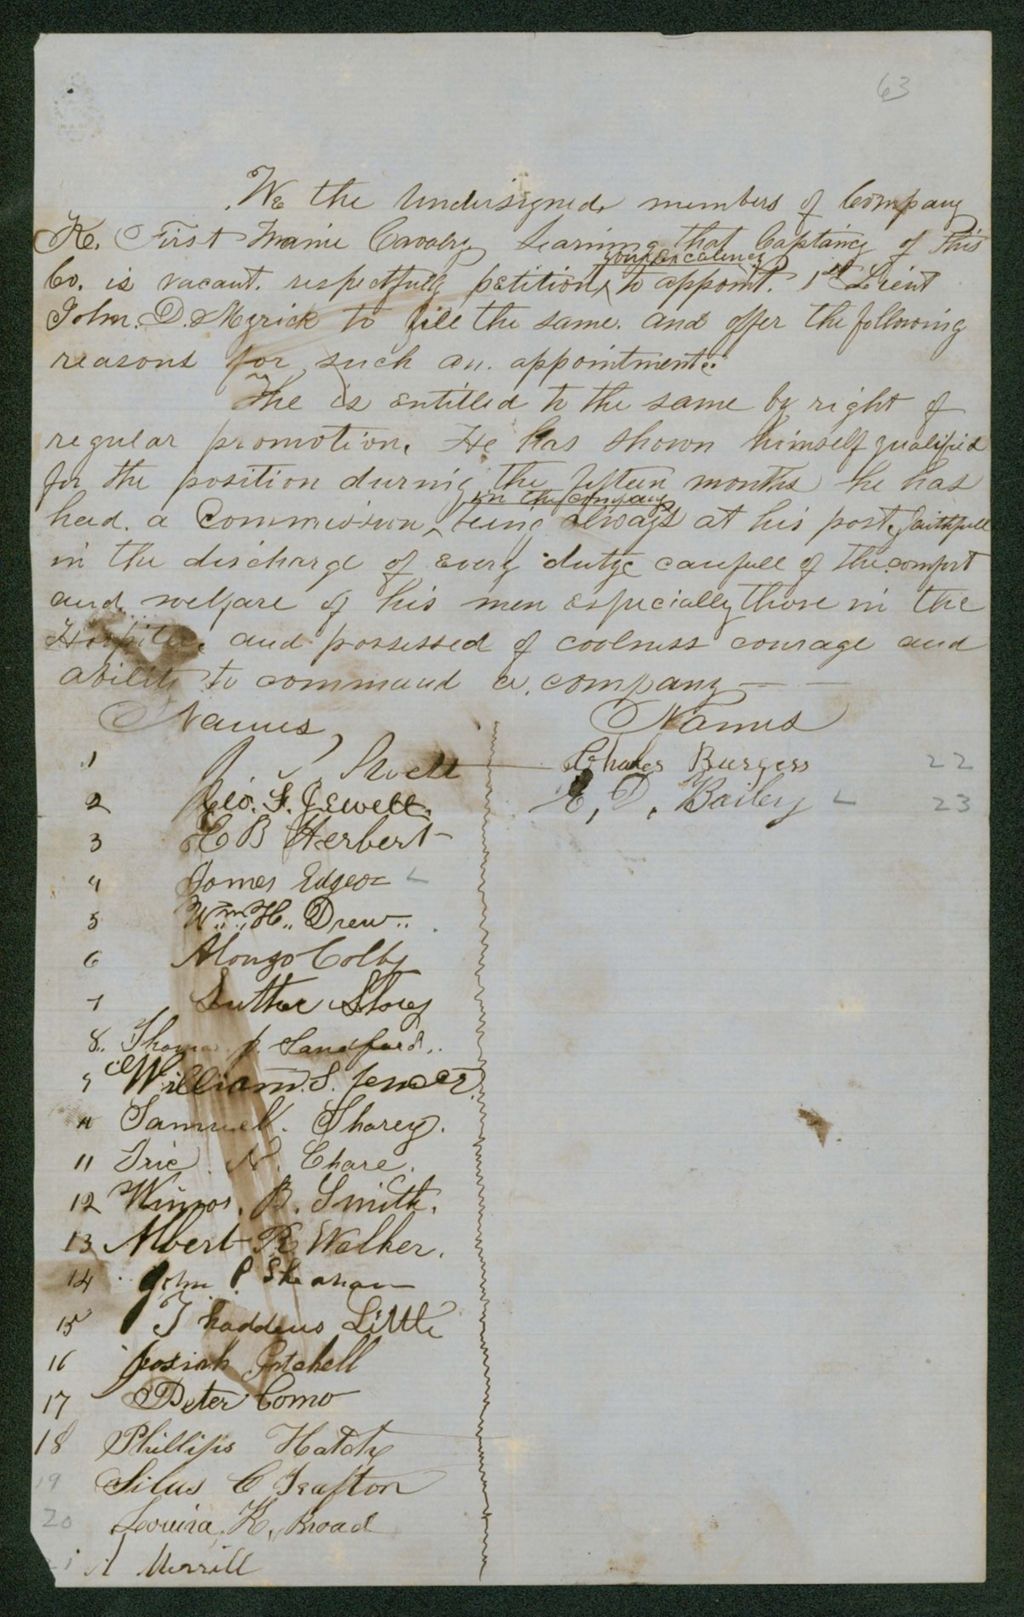 63
We the Undersigned, members of Company
K. First Maine Cavalry learning that Captaincy of this
your excelency
Co. is vacant. respectfully petition to appoint. 1st Lieut
John. D. Myrick to fill the same. and offer the following
reasons for such an. appointment.:
The is entitled to the same by right of
regular promotion. He has shown himself qualified
for the position during the fifteen months he has
in the company
had. a Commission being always at his post, faithfull
in the discharge of every duty carefull of the comfort
and welfare of his men especially those in the
Hospital, and possessed of coolness courage and
ability to command a. company
Names
Names
1
Charles Burgess 22
2 Geo. F. Jewett.
E, D. Bailey 23
3 H B Herbert
4 James Edgar
5 Wm. H. Drew..
6 Alonzo Colby
7 Luther Storey
8. Thomas J. Sandford..
9 William. S.
10 Samuel. Shorey.
11 N. Chase.
12 B. Smith.
13 Albert R Walker.
14 John P. Sheahan
15 Thaddeus Little
16 Josiah Getchell
17 Peter Como
18 Phillips Hatch
19 Silas C Trafton
20 K. Broad
21 Merrill